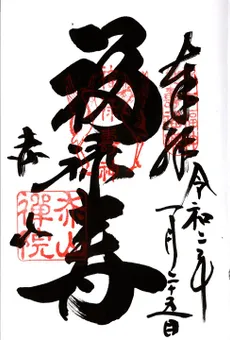 奉拝
令和二年
一月二十五日
福禄寿
赤山
赤山
禅院